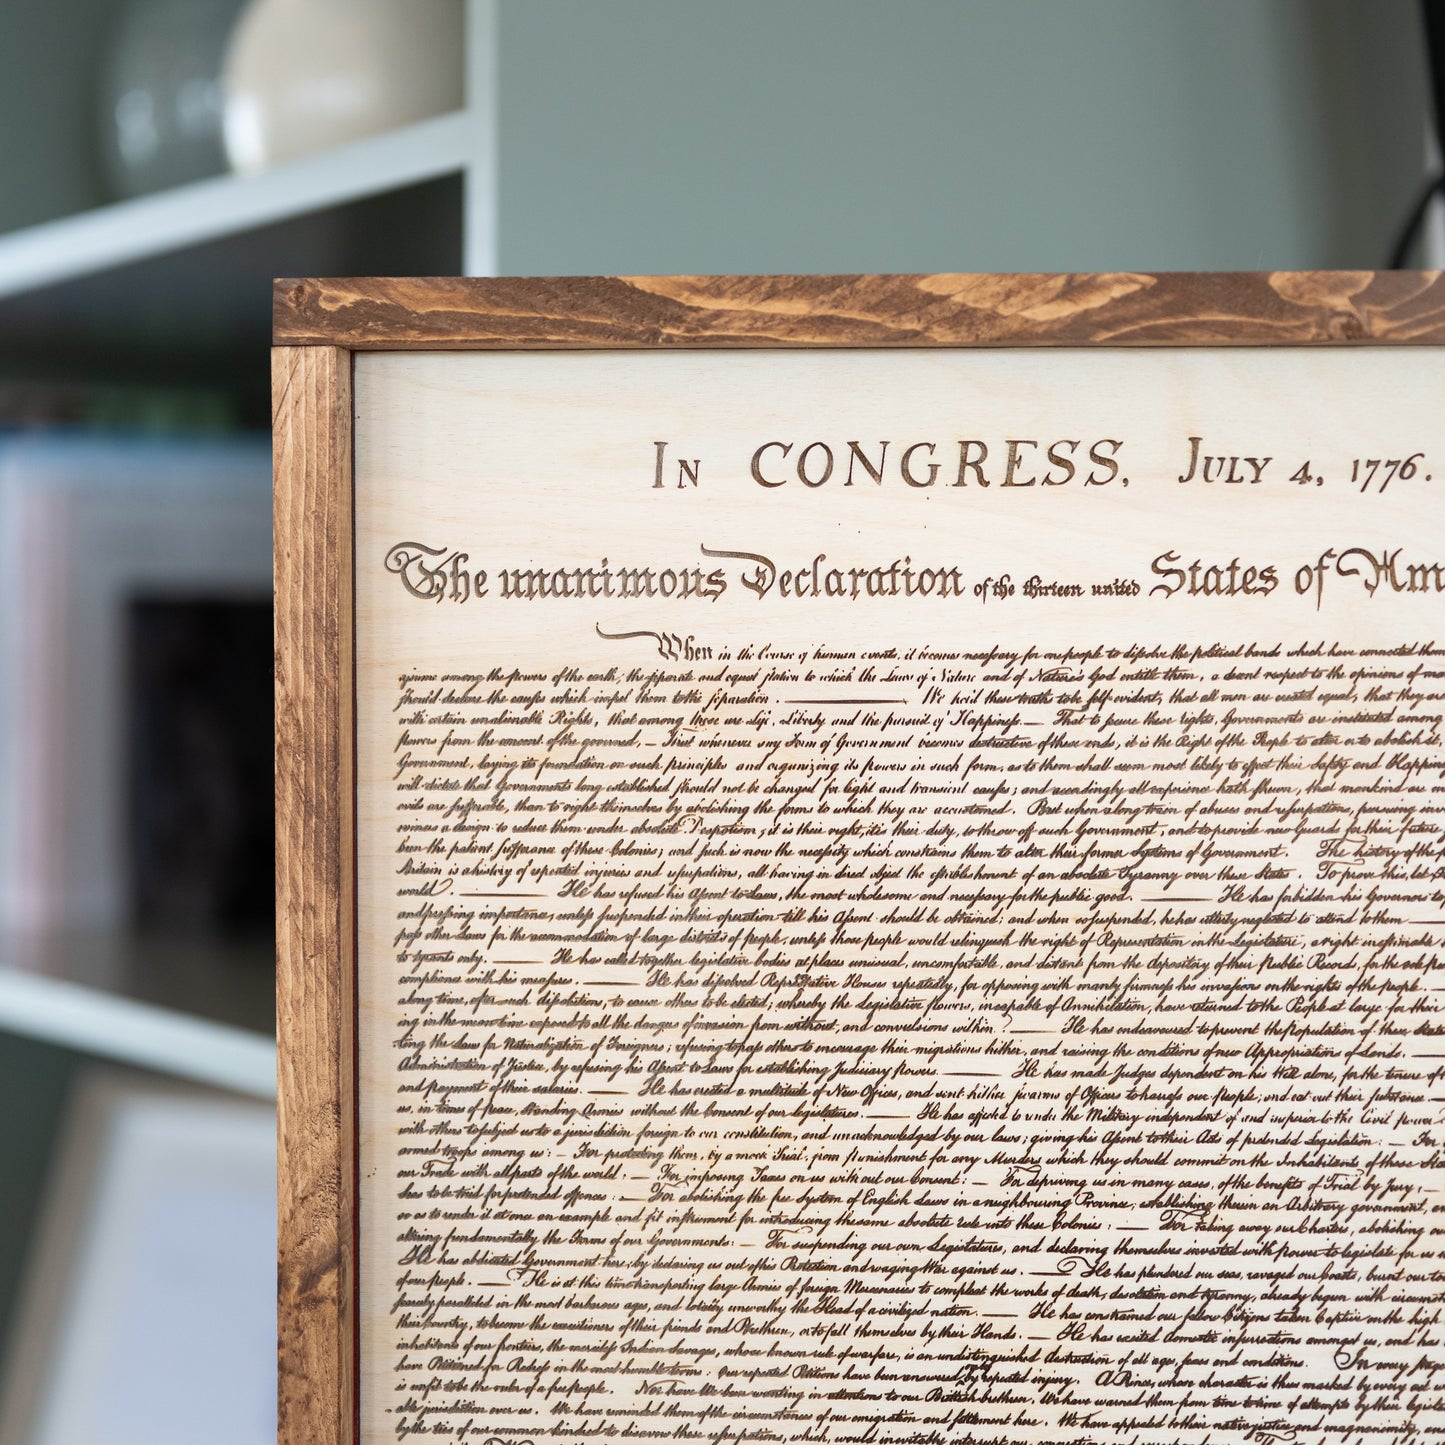 In CONGRESS, July 4, 1776.
The unanimous Declaration of the thirteen united States of Am
When in the Course of human events, it becomes necessary for one people to dissolve the political bands which have connected them
assume among the powers of the earth, the separate and equal station to which the Laws of Nature and of Nature's God entitle them, a decent respect to the opinions of
should declare the causes which impel them to the separation. ——— We hold these truths to be self-evident, that all men are created equal, that they are
with certain unalienable Rights, that among these are Life, Liberty and the pursuit of Happiness.— That to secure these rights, Governments are instituted among
powers from the consent of the governed, — That whenever any Form of Government becomes destructive of these ends, it is the Right of the People to alter or to abolish it,
Government, laying its foundation on such principles and organizing its powers in such form, as to them shall seem most likely to effect their Safety and Happin
will dictate that Governments long established should not be changed for light and transient causes; and accordingly all experience hath shewn, that mankind are
evils are sufferable, than to right themselves by abolishing the forms to which they are accustomed. But when a long train of abuses and usurpations, pursuing inv
evinces a design to reduce them under absolute Despotism, it is their right, it is their duty, to throw off such Government, and to provide new Guards for their future
been the patient sufferance of these Colonies; and such is now the necessity which constrains them to alter their former Systems of Government. The history of the
Britain is a history of repeated injuries and usurpations, all having in direct object the establishment of an absolute Tyranny over these States. To prove this, let
world. ——— He has refused his Assent to Laws, the most wholesome and necessary for the public good. ——— He has forbidden his Governors to
and pressing importance, unless suspended in their operation till his Assent should be obtained; and when so suspended, he has utterly neglected to attend to them ———
pass other Laws for the accommodation of large districts of people, unless those people would relinquish the right of Representation in the Legislature, a right inestimable
to tyrants only. ——— He has called together legislative bodies at places unusual, uncomfortable, and distant from the depository of their Public Records, for the sole
compliance with his measures. ——— He has dissolved Representative Houses repeatedly, for opposing with manly firmness his invasions on the rights of the people. —
along time, after such dissolutions, to cause others to be elected; whereby the Legislative powers, incapable of Annihilation, have returned to the People at large for their
ing in the mean time exposed to all the dangers of invasion from without, and convulsions within. ——— He has endeavoured to prevent the population of these States
ting the Laws for Naturalization of Foreigners; refusing to pass others to encourage their migrations hither, and raising the conditions of new Appropriations of Lands. ———
Administration of Justice, by refusing his Assent to Laws for establishing Judiciary powers. ——— He has made Judges dependent on his Will alone, for the tenure of
and payment of their salaries. ——— He has erected a multitude of New Offices, and sent hither swarms of Officers to harrass our people, and eat out their substance. —
us, in times of peace, Standing Armies without the Consent of our legislatures. ——— He has affected to render the Military independent of and superior to the Civil power
with others to subject us to a jurisdiction foreign to our constitution, and unacknowledged by our laws; giving his Assent to their Acts of pretended Legislation: — For
armed troops among us: — For protecting them, by a mock Trial, from punishment for any Murders which they should commit on the Inhabitants of these Sta
our Trade with all parts of the world: — For imposing Taxes on us without our Consent: — For depriving us in many cases, of the benefits of Trial by Jury: —
Seas to be tried for pretended offences: — For abolishing the free System of English Laws in a neighbouring Province, establishing therein an Arbitrary government,
so as to render it at once an example and fit instrument for introducing the same absolute rule into these Colonies: — For taking away our Charters, abolishing
altering fundamentally the Forms of our Governments: — For suspending our own Legislatures, and declaring themselves invested with power to legislate for us
He has abdicated Government here, by declaring us out of his Protection and waging War against us. — He has plundered our seas, ravaged our Coasts, burnt our
of our people. — He is at this time transporting large Armies of foreign Mercenaries to compleat the works of death, desolation and tyranny, already begun with
scarcely paralleled in the most barbarous ages, and totally unworthy the Head of a civilized nation. — He has constrained our fellow Citizens taken Captive on the high
their Country, to become the executioners of their friends and Brethren, or to fall themselves by their Hands. — He has excited domestic insurrections amongst us, and has
inhabitants of our frontiers, the merciless Indian Savages, whose known rule of warfare, is an undistinguished destruction of all ages, sexes and conditions. In every
have Petitioned for Redress in the most humble terms: Our repeated Petitions have been answered by repeated injury. A Prince, whose character is thus marked by every act
is unfit to be the ruler of a free people. Nor have We been wanting in attentions to our Brittish brethren. We have warned them from time to time of attempts by their
able jurisdiction over us. We have reminded them of the circumstances of our emigration and settlement here. We have appealed to their native justice and magnanimity,
by the ties of our common kindred to disavow these usurpations, which, would inevitably interrupt our connections and